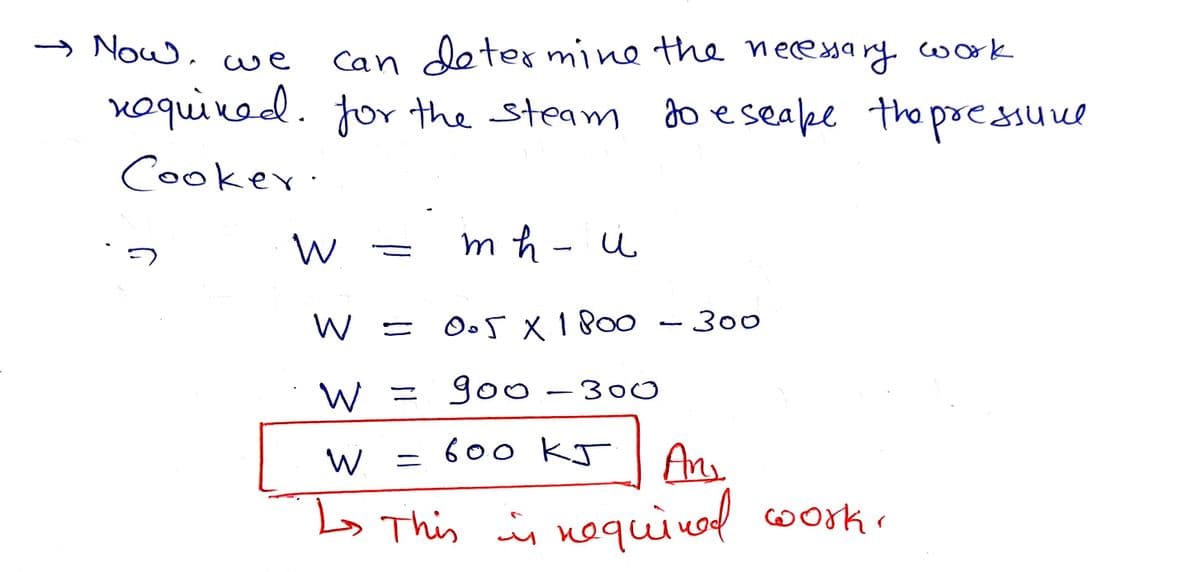 → Now. we can determine the necessary work
required. for the steam to eseape the pressure
Cooker.
⇒ W = mh - u
W = 0.5 X 1800 - 300
W = 900 - 300
W = 600 KJ Ans
↳ This is required work.